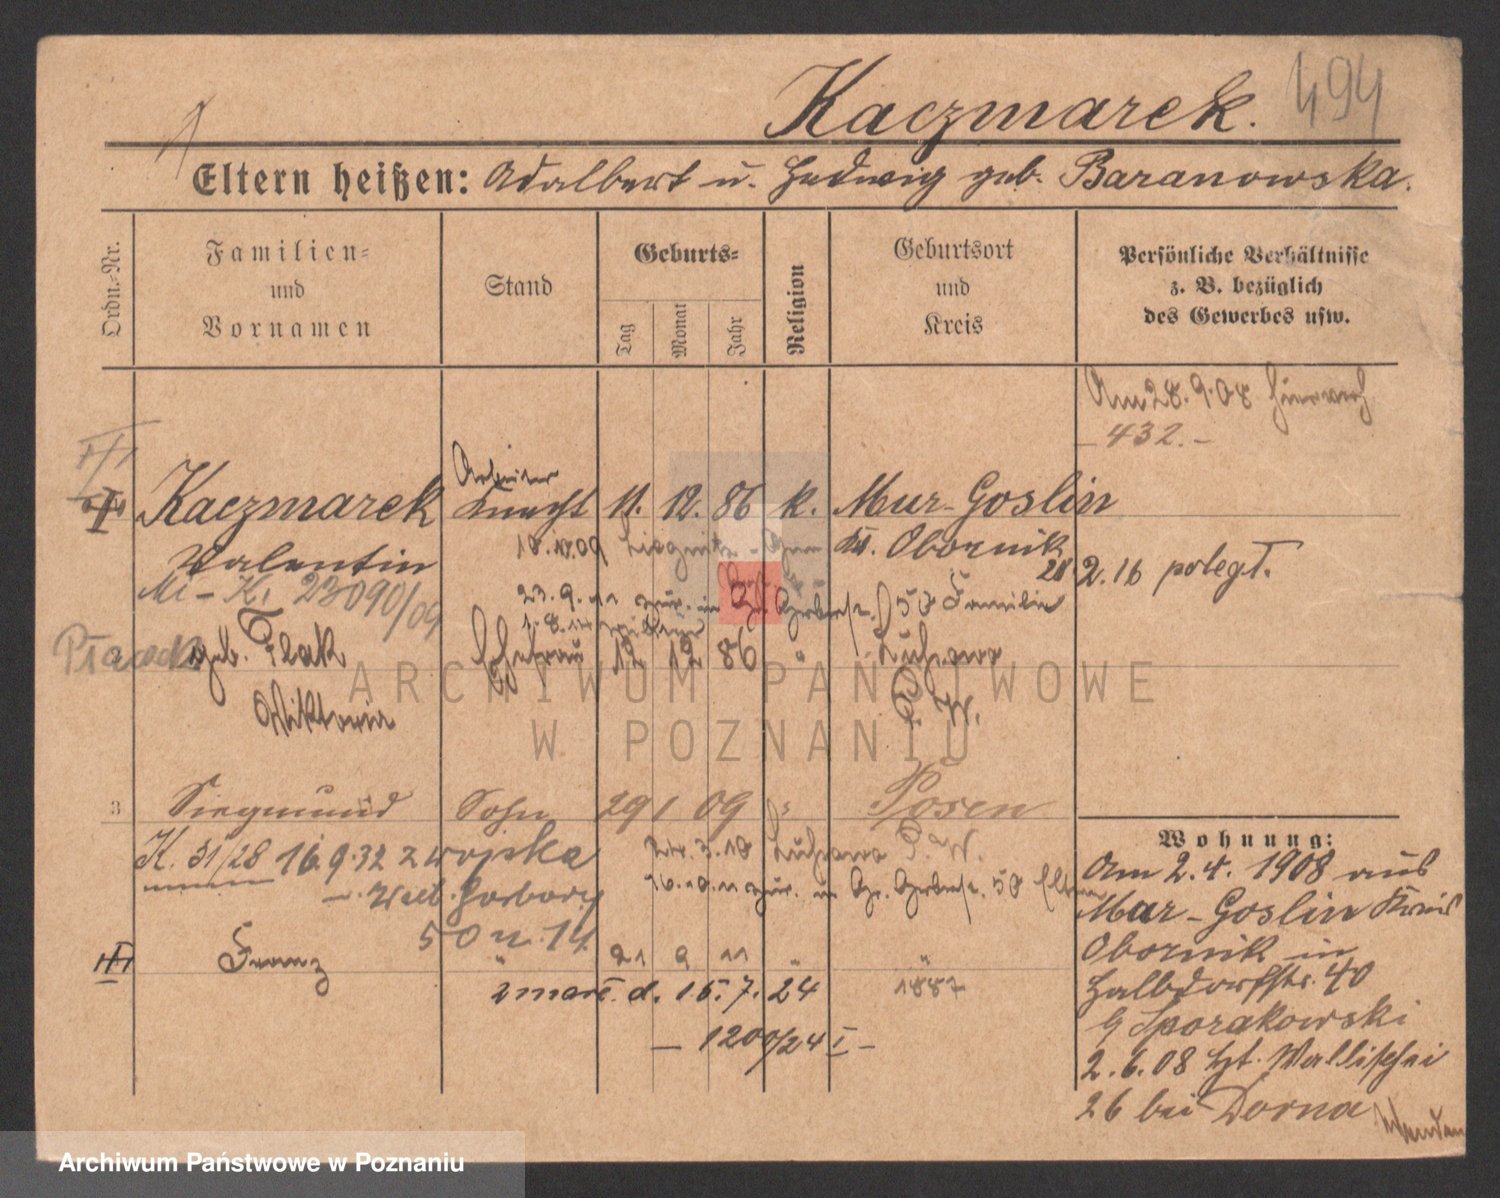 Kaczmarek. 494
Eltern heißen: Adalbert u. Hedwig geb. Baranowska.
Ordn.-Nr.
Familien- und Vornamen
Stand
Geburts-
Tag
Monat
Jahr
Religion
Geburtsort und Kreis
Persönliche Verhältnisse
z. B. bezüglich
des Gewerbes usw.
Am 28.9.08
- 432. -
Arbeiter
Kaczmarek Knecht 11. 12. 86 k. Mur-Goslin
Valentin Kr. Obornik
10.11.09 Liegnitz
28 2.16 poległ.
23090/09
23.9.11 zur. in Gr. Gerberstr. 50 Familie
geb. Ptak Ehefrau 12 12 86 "
Wiktoria P. W.
ARCHIWUM PAŃSTWOWE
W POZNANIU
3 Siegmund Sohn 29 1 09 " Posen
K. 31/28 16.9.32 z wojska
3.10 P. W.
16.10.11 zur. in Gr. Gerberstr. 50 Eltern
Garbary
50 n. 14
III Franz " 21 9 11 " "
zmarł. d. 15. 7. 24 1887
- 1200/24 I -
Wohnung:
Am 2.4. 1908 aus
Mur-Goslin Kreis
Obornik in
Halbdorfstr. 40
b Sporakowski
2.6.08 Wallischei
26 bei Dorna
Wenden
Archiwum Państwowe w Poznaniu